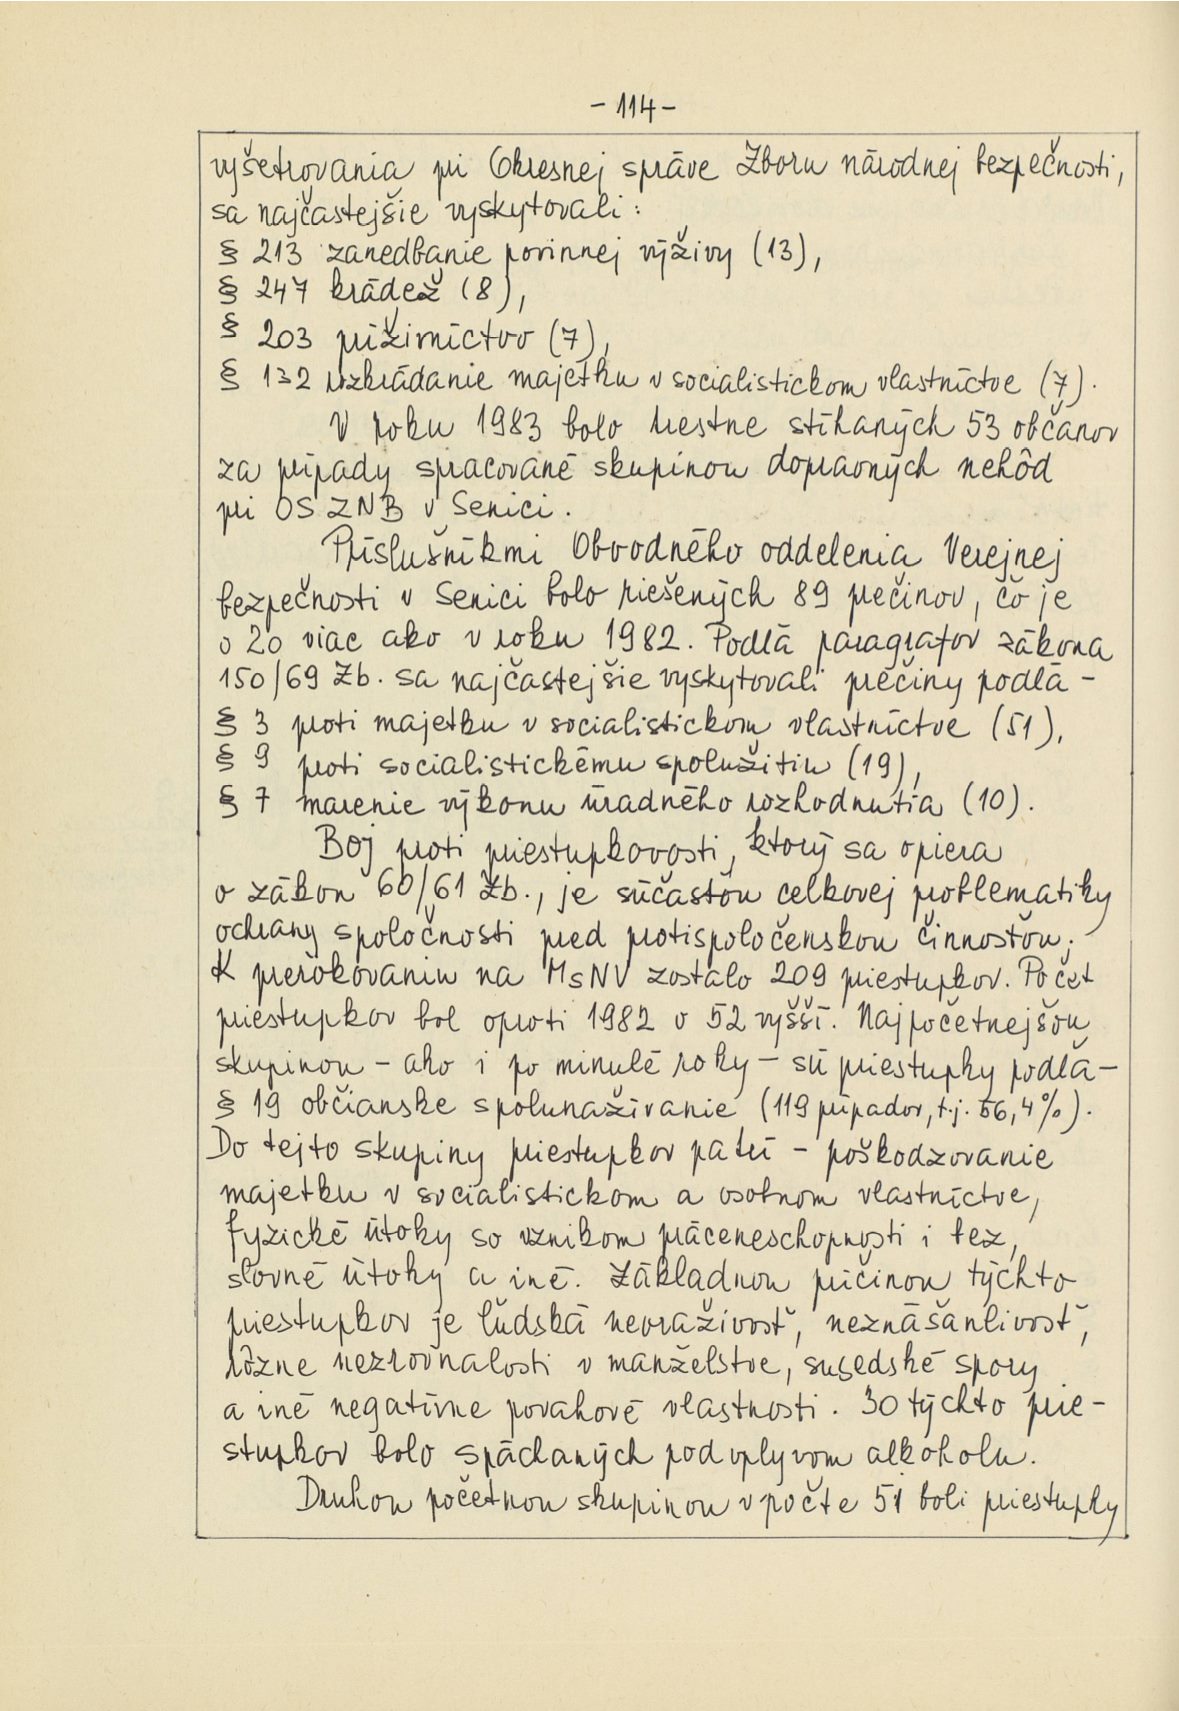 - 114 -
vyšetrovania pri Okresnej správe Zboru národnej bezpečnosti,
sa najčastejšie vyskytovali :
§ 213 zanedbanie povinnej výživy (13),
§ 247 krádež (8),
§ 203 príživníctvo (7),
§ 132 rozkrádanie majetku v socialistickom vlastníctve (7).
V roku 1983 bolo trestne stíhaných 53 občanov
za prípady spracované skupinou dopravných nehôd
pri OS ZNB v Senici.
Príslušníkmi Obvodného oddelenia Verejnej
bezpečnosti v Senici bolo riešených 89 prečinov, čo je
o 20 viac ako v roku 1982. Podľa paragrafov zákona
150/69 Zb. sa najčastejšie vyskytovali prečiny podľa -
§ 3 proti majetku v socialistickom vlastníctve (51),
§ 9 proti socialistickému spolužitiu (19),
§ 7 marenie výkonu úradného rozhodnutia (10).
Boj proti priestupkovosti, ktorý sa opiera
o zákon 60/61 Zb., je súčasťou celkovej problematiky
ochrany spoločnosti pred protispoločenskou činnosťou.
K prerokovaniu na MsNV zostalo 209 priestupkov. Počet
priestupkov bol oproti 1982 o 52 vyšší. Najpočetnejšou
skupinou - ako i po minulé roky - sú priestupky podľa -
§ 19 občianske spolunažívanie (119 prípadov, t.j. 56,4%).
Do tejto skupiny priestupkov patrí - poškodzovanie
majetku v socialistickom a osobnom vlastníctve,
fyzické útoky so vznikom práceneschopnosti i bez,
slovné útoky a iné. Základnou príčinou týchto
priestupkov je ľudská nevraživosť, neznášanlivosť,
rôzne nezrovnalosti v manželstve, susedské spory
a iné negatívne povahové vlastnosti. 30 týchto prie-
stupkov bolo spáchaných pod vplyvom alkoholu.
Druhou početnou skupinou v počte 51 boli priestupky